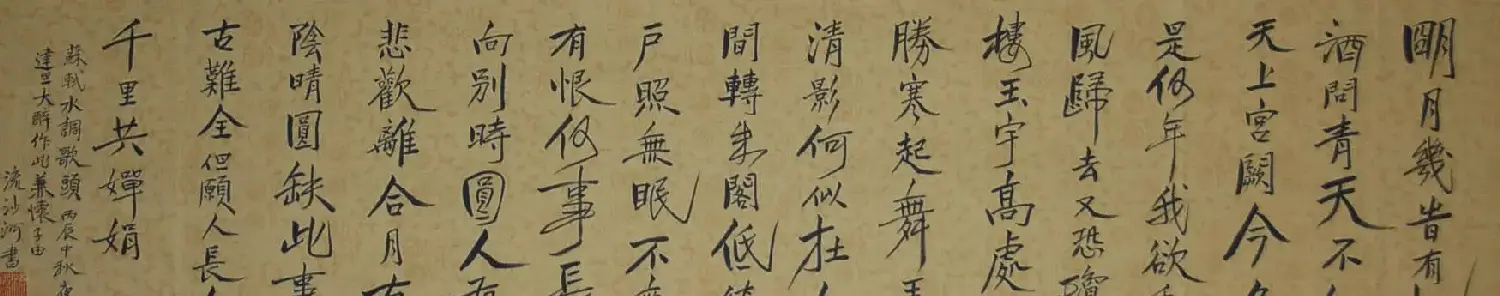 明月幾时有
酒問青天不
天上宮闕今
是何年我欲
風歸去又恐瓊
樓玉宇高處
勝寒起舞弄
清影何似在人
間轉朱閣低綺
戶照無眠不應
有恨何事長
向别時圓人有
悲歡離合月有
陰晴圓缺此事
古難全但願人長
千里共嬋娟
蘇軾水調歌頭丙辰中秋夜
達旦大醉作此兼懷子由
流沙河書